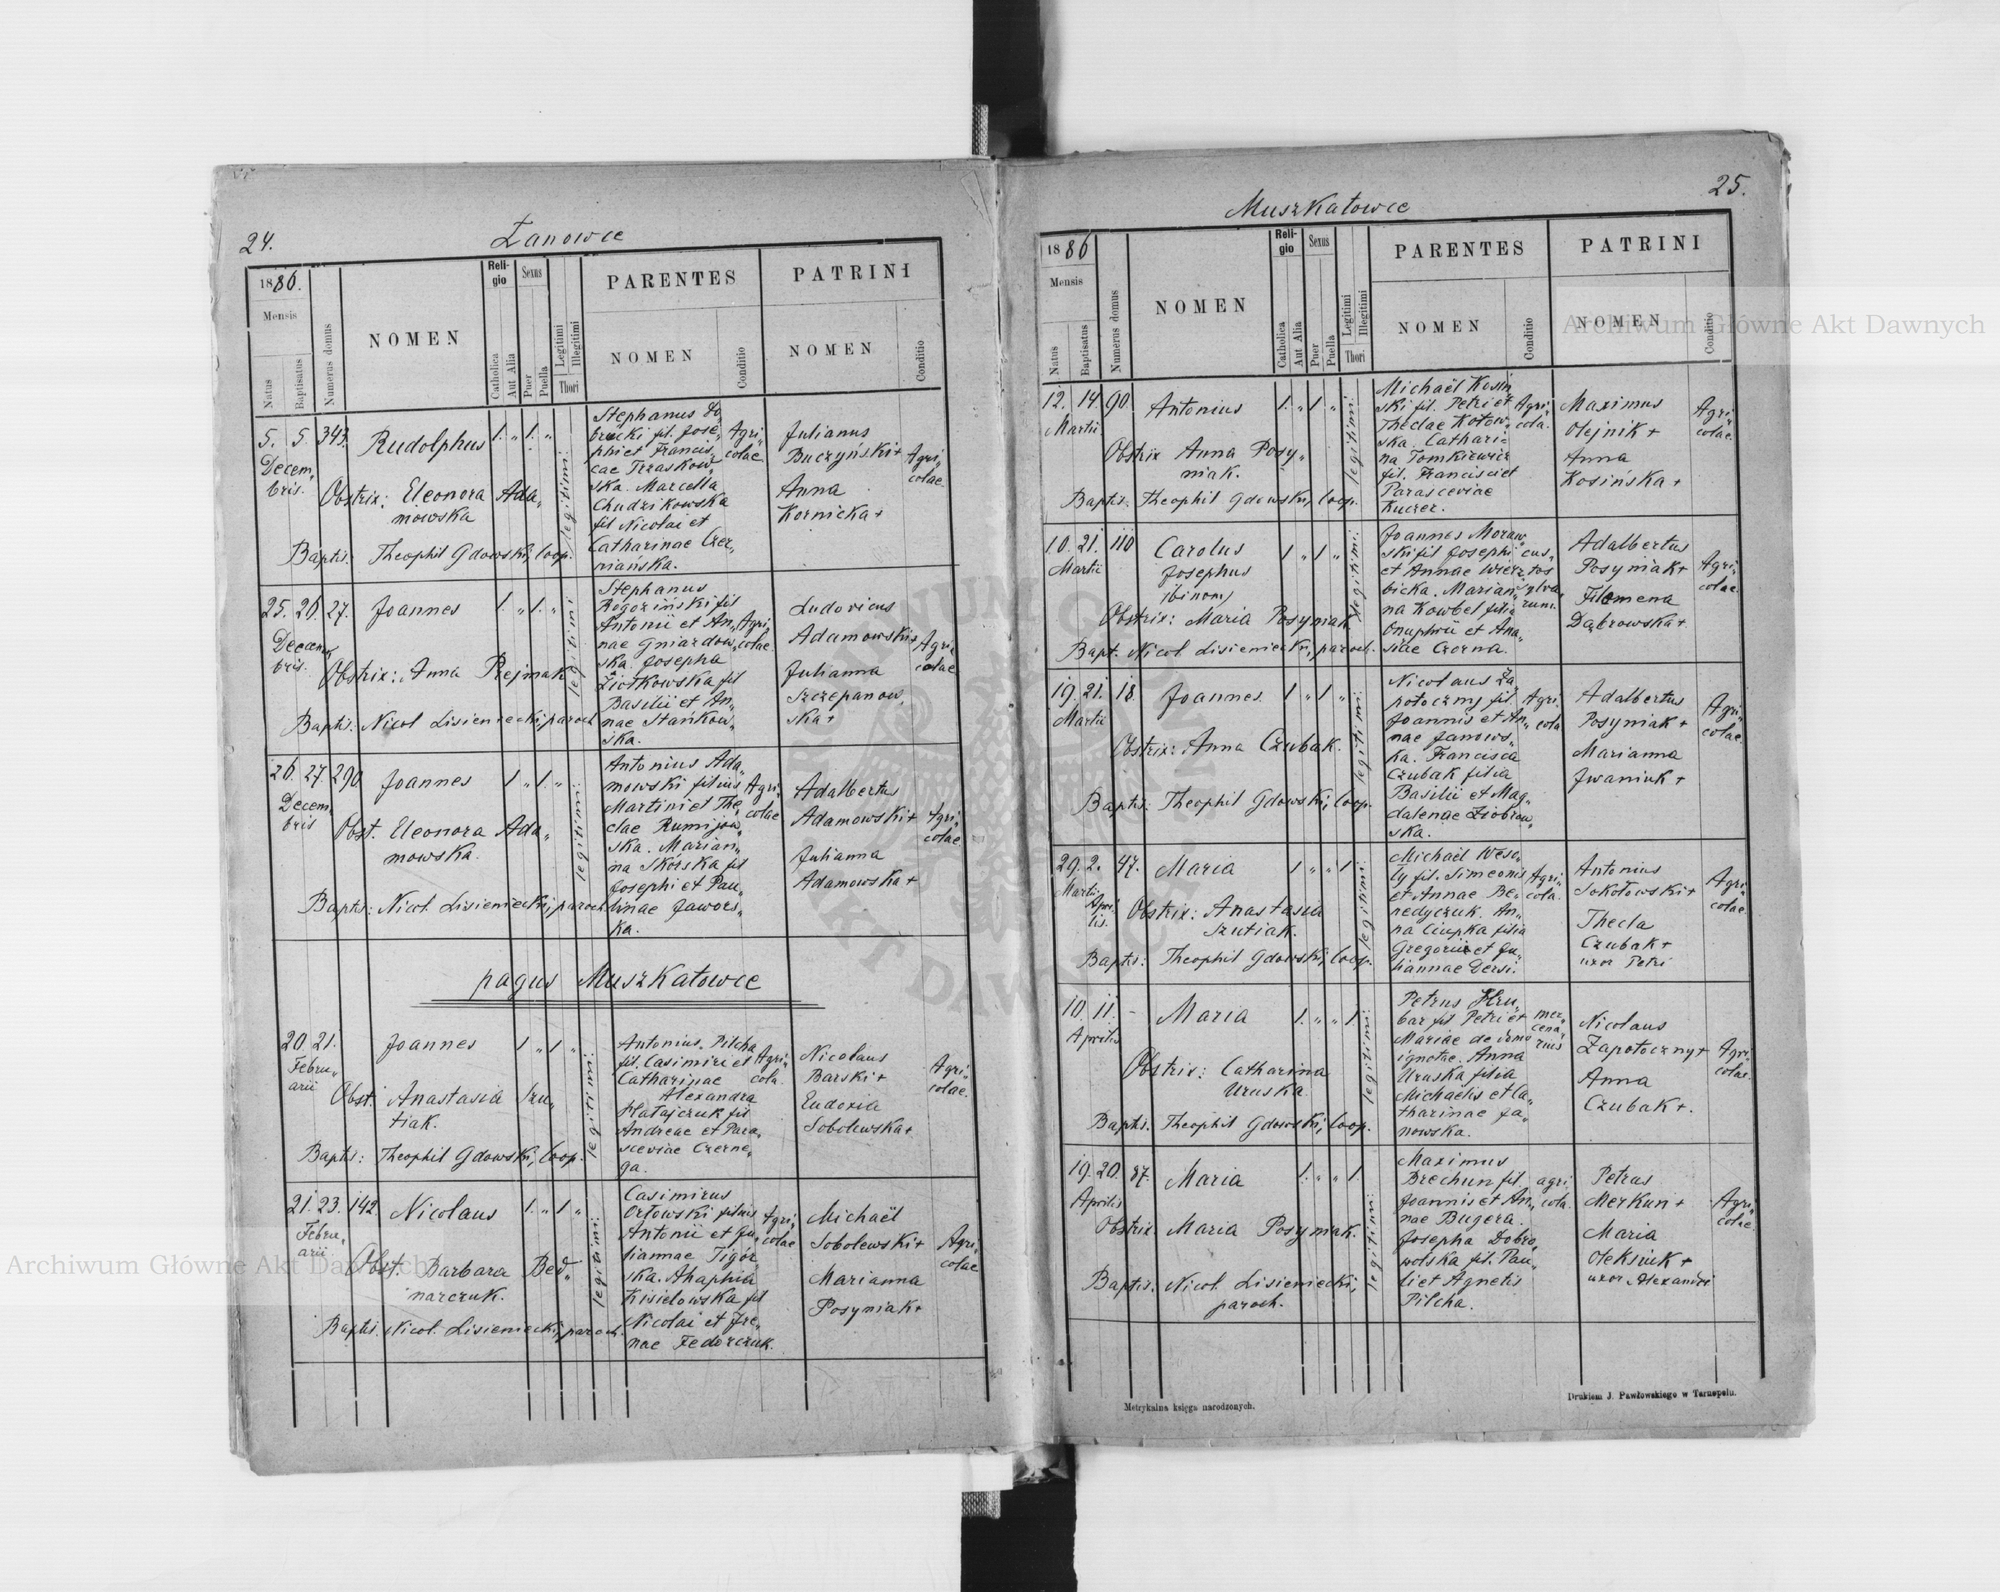 24.
Łanowce
1886.
Mensis
Natus
Baptisatus
Numerus domus
NOMEN
Reli-
gio
Catholica
Aut Alia
Sexus
Puer
Puella
Legitimi
Illegitimi
Thori
PARENTES
NOMEN
Conditio
PATRINI
NOMEN
Conditio
5. 5. 343. Rudolphus 1. „ 1. „
Decem„
bris.
Obstrix: Eleonora Ada„
mowska
Baptis: Theophil Gdowski, Coop.
legitimi
Stephanus Do
brucki fil. Jose„
phi et Francis„
cae Trzaskow„
ska. Marcella
Chudzikowska
fil Nicolai et
Catharinae Czer„
niańska.
Agri„
colae
Julianus
Buczyński+
Anna
Kornicka+
Agri„
colae
25. 26. 27. Joannes 1. „ 1. „
Decem„
bris.
Obstrix: Anna Rejmak
Baptis: Nicol Lisieniecki, paroch
legitimi
Stephanus
Rogoziński fil
Antonii et An„
nae Gniazdow„
ska. Josepha
Ziołkowska fil
Basilii et An„
nae Stańkow„
ska.
Agri„
colae.
Ludovicus
Adamowski+
Julianna
Szczepanow„
ska+
Agri„
colae
26. 27. 290. Joannes 1 „ 1. „
Decem„
bris
Obst. Eleonora Ada„
mowska.
Baptis: Nicol. Lisieniecki, paroch.
legitimi.
Antonius Ada„
mowski filius
Martini et The„
clae Rumijow„
ska. Marian„
na Skórska fil
Josephi et Pau„
linae Jawors„
ka.
Agri„
colae
Adalbertus
Adamowski+
Julianna
Adamowska+
Agri„
colae
pagus Muszkatowce
20. 21. Joannes 1 „ 1 „
Febru„
arii
Obst. Anastasia Szu„
tiak.
Baptis: Theophil Gdowski, Coop.
legitimi.
Antonius Pilcha
fil. Casimiri et
Catharinae
Alexandra
Hatajczuk fil
Andreae et Para„
sceviae Czerne„
ga.
Agri„
cola.
Nicolaus
Barski+
Eudoxia
Sobolewska+
Agri„
colae.
21. 23. 142. Nicolaus 1. „ 1 „
Febru„
arii
Obst. Barbara Bed„
narczuk.
Baptis. Nicol. Lisieniecki, paroch.
legitimi.
Casimirus
Orłowski filius
Antonii et Ju„
liannae Tigór„
ska. Ahaphia
Kisielowska fil
Nicolai et Ire„
nae Federczuk.
Agri„
colae
Michaël
Sobolewski+
Marianna
Posyniak+
Agri„
colae
25.
Muszkatowce
1886
Mensis
Natus
Baptisatus
Numerus domus
NOMEN
Reli-
gio
Catholica
Aut Alia
Sexus
Puer
Puella
Legitimi
Illegitimi
Thori
PARENTES
NOMEN
Conditio
PATRINI
NOMEN
Conditio
12. 14. 90. Antonius 1. „ 1 „
Martii
Obstrix Anna Posy„
niak.
Baptis: Theophil Gdowski, Coop.
legitimi.
Michaël Kosiń
ski fil. Petri et
Theclae Kotow„
ska. Cathari„
na Tomkiewicz
fil. Francisci et
Parasceviae
Kuczer.
Agri„
cola.
Maximus
Olejnik+
Anna
Kosińska+
Agri„
colae.
10. 21. 110 Carolus 1 „ 1 „
Martii
Josephus
(binom)
Obstrix: Maria Posyniak
Bapt. Nicol Lisieniecki, paroch.
legitimi.
Joannes Moraw„
ski fil Josephi
et Annae Wierz
bicka. Marian„
na Kowbel filia
Onuphrii et Ana„
siae Czorna.
cus„
tos
sylva„
rum.
Adalbertus
Posyniak+
Filomena
Dąbrowska+
Agri„
colae
19. 21. 18. Joannes. 1 „ 1 „
Martii
Obstrix: Anna Czubak.
Baptis: Theophil Gdowski, Coop.
legitimi.
Nicolaus Za„
potoczny fil.
Joannis et An„
nae Janows„
ka. Francisca
Czubak filia
Basilii et Mag„
dalenae Ziobrow„
ska.
Agri„
cola
Adalbertus
Posyniak+
Marianna
Iwaniuk+
Agri„
colae.
29. 2. 47. Maria 1 „ „ 1
Martii
Apri„
lis.
Obstrix: Anastasia
Szutiak.
Baptis: Theophil Gdowski, Coop.
legitimi.
Michaël Weso„
ły fil. Simeonis
et Annae Be„
nedyczuk. An„
na Ciupka filia
Gregorii et Ju„
liannae Dersi.
Agri„
cola.
Antonius
Sokołowski+
Thecla
Czubak+
uxor Petri
Agri„
colae.
10. 11. - Maria 1. „ „ 1.
Aprilis
Obstrix: Catharina
Uruska.
Baptis. Theophil Gdowski, Coop.
legitimi.
Petrus Hru„
bar fil Petri et
Mariae de domo
ignotae. Anna
Uruska filia
Michaelis et Ca„
tharinae Ja„
nowska.
mer„
cena„
rius
Nicolaus
Zapotoczny+
Anna
Czubak+.
Agri„
colae.
19. 20. 87. Maria 1. „ „ 1.
Aprilis
Obstrix Maria Posyniak.
Baptis. Nicol. Lisieniecki,
paroch.
legitimi.
Maximus
Brechun fil.
Joannis et An„
nae Bugera.
Josepha Dobro„
wolska fil. Pau„
li et Agnetis
Pilcha.
agri„
cola.
Petrus
Merkun+
Maria
Oleksiuk+
uxor Alexandri
Agri„
colae
Metrykalna księga narodzonych.
Drukiem J. Pawłowskiego w Tarnopolu.
Archiwum Główne Akt Dawnych
Archiwum Główne Akt Dawnych